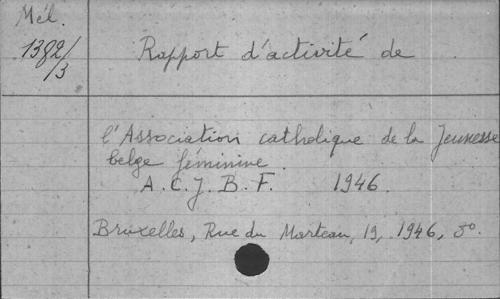 Mél.
1392/3
Rapport d'activité de
l'Association catholique de la Jeunesse
belge féminine.
A.C.J.B.F. 1946.
Bruxelles, Rue du Marteau, 19, 1946, 8°.